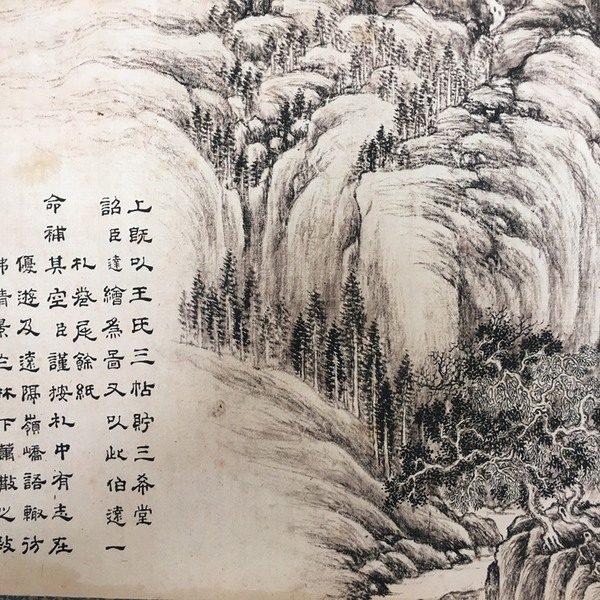 上既以王氏三帖貯三希堂
詔臣達繪為圖又以此伯遠一
札卷尾餘紙
命補其空臣謹按札中有志在
優遊及遠隔嶺嶠語輒仿
林下蕭散之致